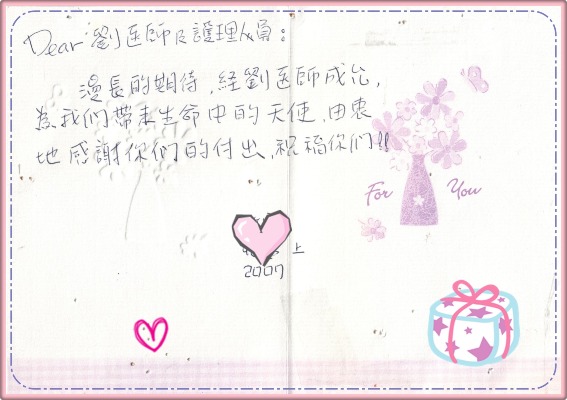 Dear 劉医師及護理人員：
漫長的期待，経劉医師成全，
為我們帶来生命中的天使，由衷
地感謝你們的付出，祝福你們!!
For You
上
2007